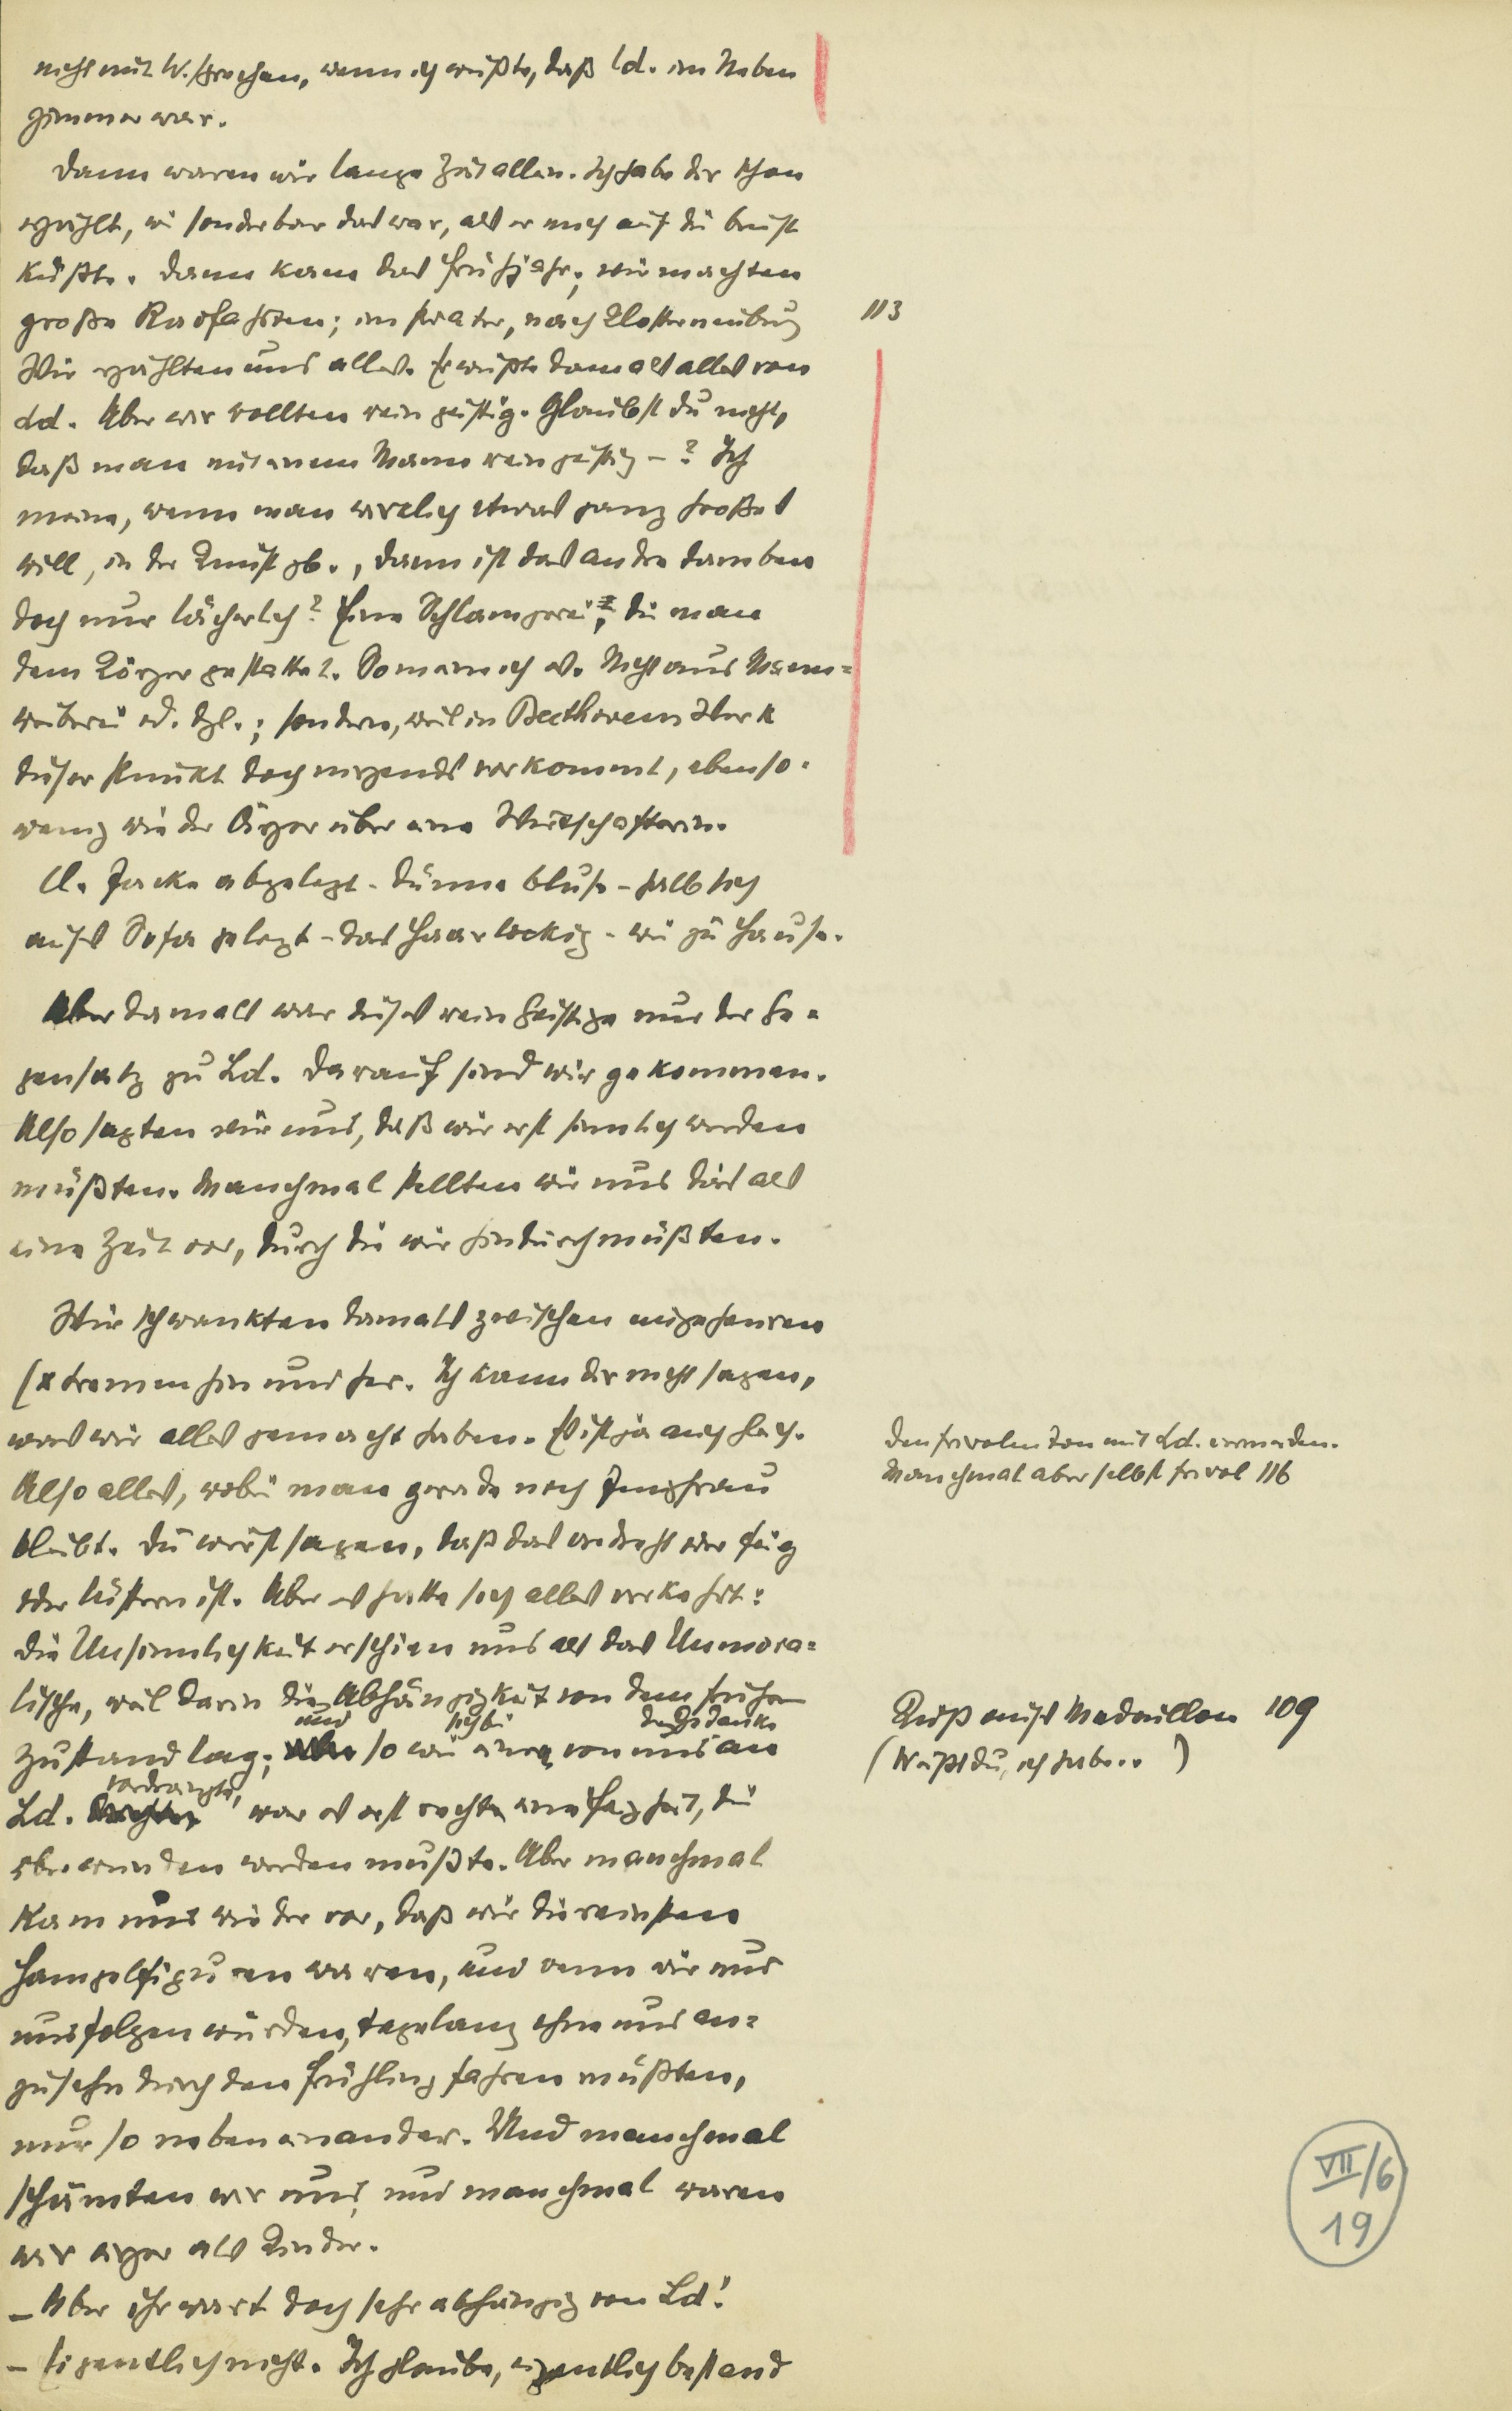 nicht mit W. sprechen, wenn ich wußte, daß Ld. im Neben
zimmer war.
Dann waren wir lange Zeit allein. Ich habe dir schon
erzählt, wie sonderbar das war, als er mich auf die Brust
küßte. Dann kam das Frühjahr; wir machten
große Radfahrten; im Prater, nach Klosterneuburg
113
Wir erzählten uns alles. Er wußte damals alles von
Ld. Aber wir wollten rein geistig. Glaubst du nicht,
daß man mit einem Mann rein geistig – ? Ich
meine, wenn man wirklich etwas ganz Großes
will, in der Kunst zb., dann ist das andre daneben
doch nur lächerlich? Eine Schlamperei, die man
dem Körper gestattet. So mein ich es. Nicht aus Mann=
weiberei od. dgl.; sondern, weil in Beethovens Werk
dieser Punkt doch nirgends vorkommt, ebenso=
wenig wie der Ärger über eine Wirtschafterin.
Cl. Jacke abgelegt – dünne Bluse – halb sich
aufs Sofa gelegt – das Haar lockig – wie zu Hause.
Aber damals war dieses rein Geistige nur der Ge=
gensatz zu Ld. Darauf sind wir gekommen.
Also sagten wir uns, daß wir erst sinnlich werden
müßten. Manchmal stellten wir uns dies als
eine Zeit vor, durch die wir hindurchmüßten.
Wir schwankten damals zwischen ungeheuren
Extremen hin und her. Ich kann dir nicht sagen,
was wir alles gemacht haben. Es ist ja auch gleich.
Den frivolen Ton mit Ld. vermeiden.
Manchmal aber selbst frivol 116
Also alles, wobei man gerade noch Jungfrau
bleibt. Du wirst sagen, daß das verdreht oder feig
oder lüstern ist. Aber es hatte sich alles verkehrt:
die Unsinnlichkeit erschien uns als das Unmora=
lische, weil darin die Abhängigkeit von dem frühern
Zustand lag; und so wie sich bei einem von uns der Gedanke an
Ld. vordrängte, war es erst recht eine Feigheit, die
Kuß aufs Medaillon 109
(Weißt du, ich habe .. )
überwunden werden mußte. Aber manchmal
kam uns wieder vor, daß wir die reinsten
Hampelfiguren waren, und wenn wir nur
uns folgen würden, tagelang ohne uns an=
zusehn durch den Frühling fahren müßten,
nur so nebeneinander. Und manchmal
schämten wir uns, und manchmal waren
wir ärger als Kinder.
– Aber ihr wart doch sehr abhängig von Ld!
– Eigentlich nicht. Ich glaube, eigentlich bestand
VII/6
19